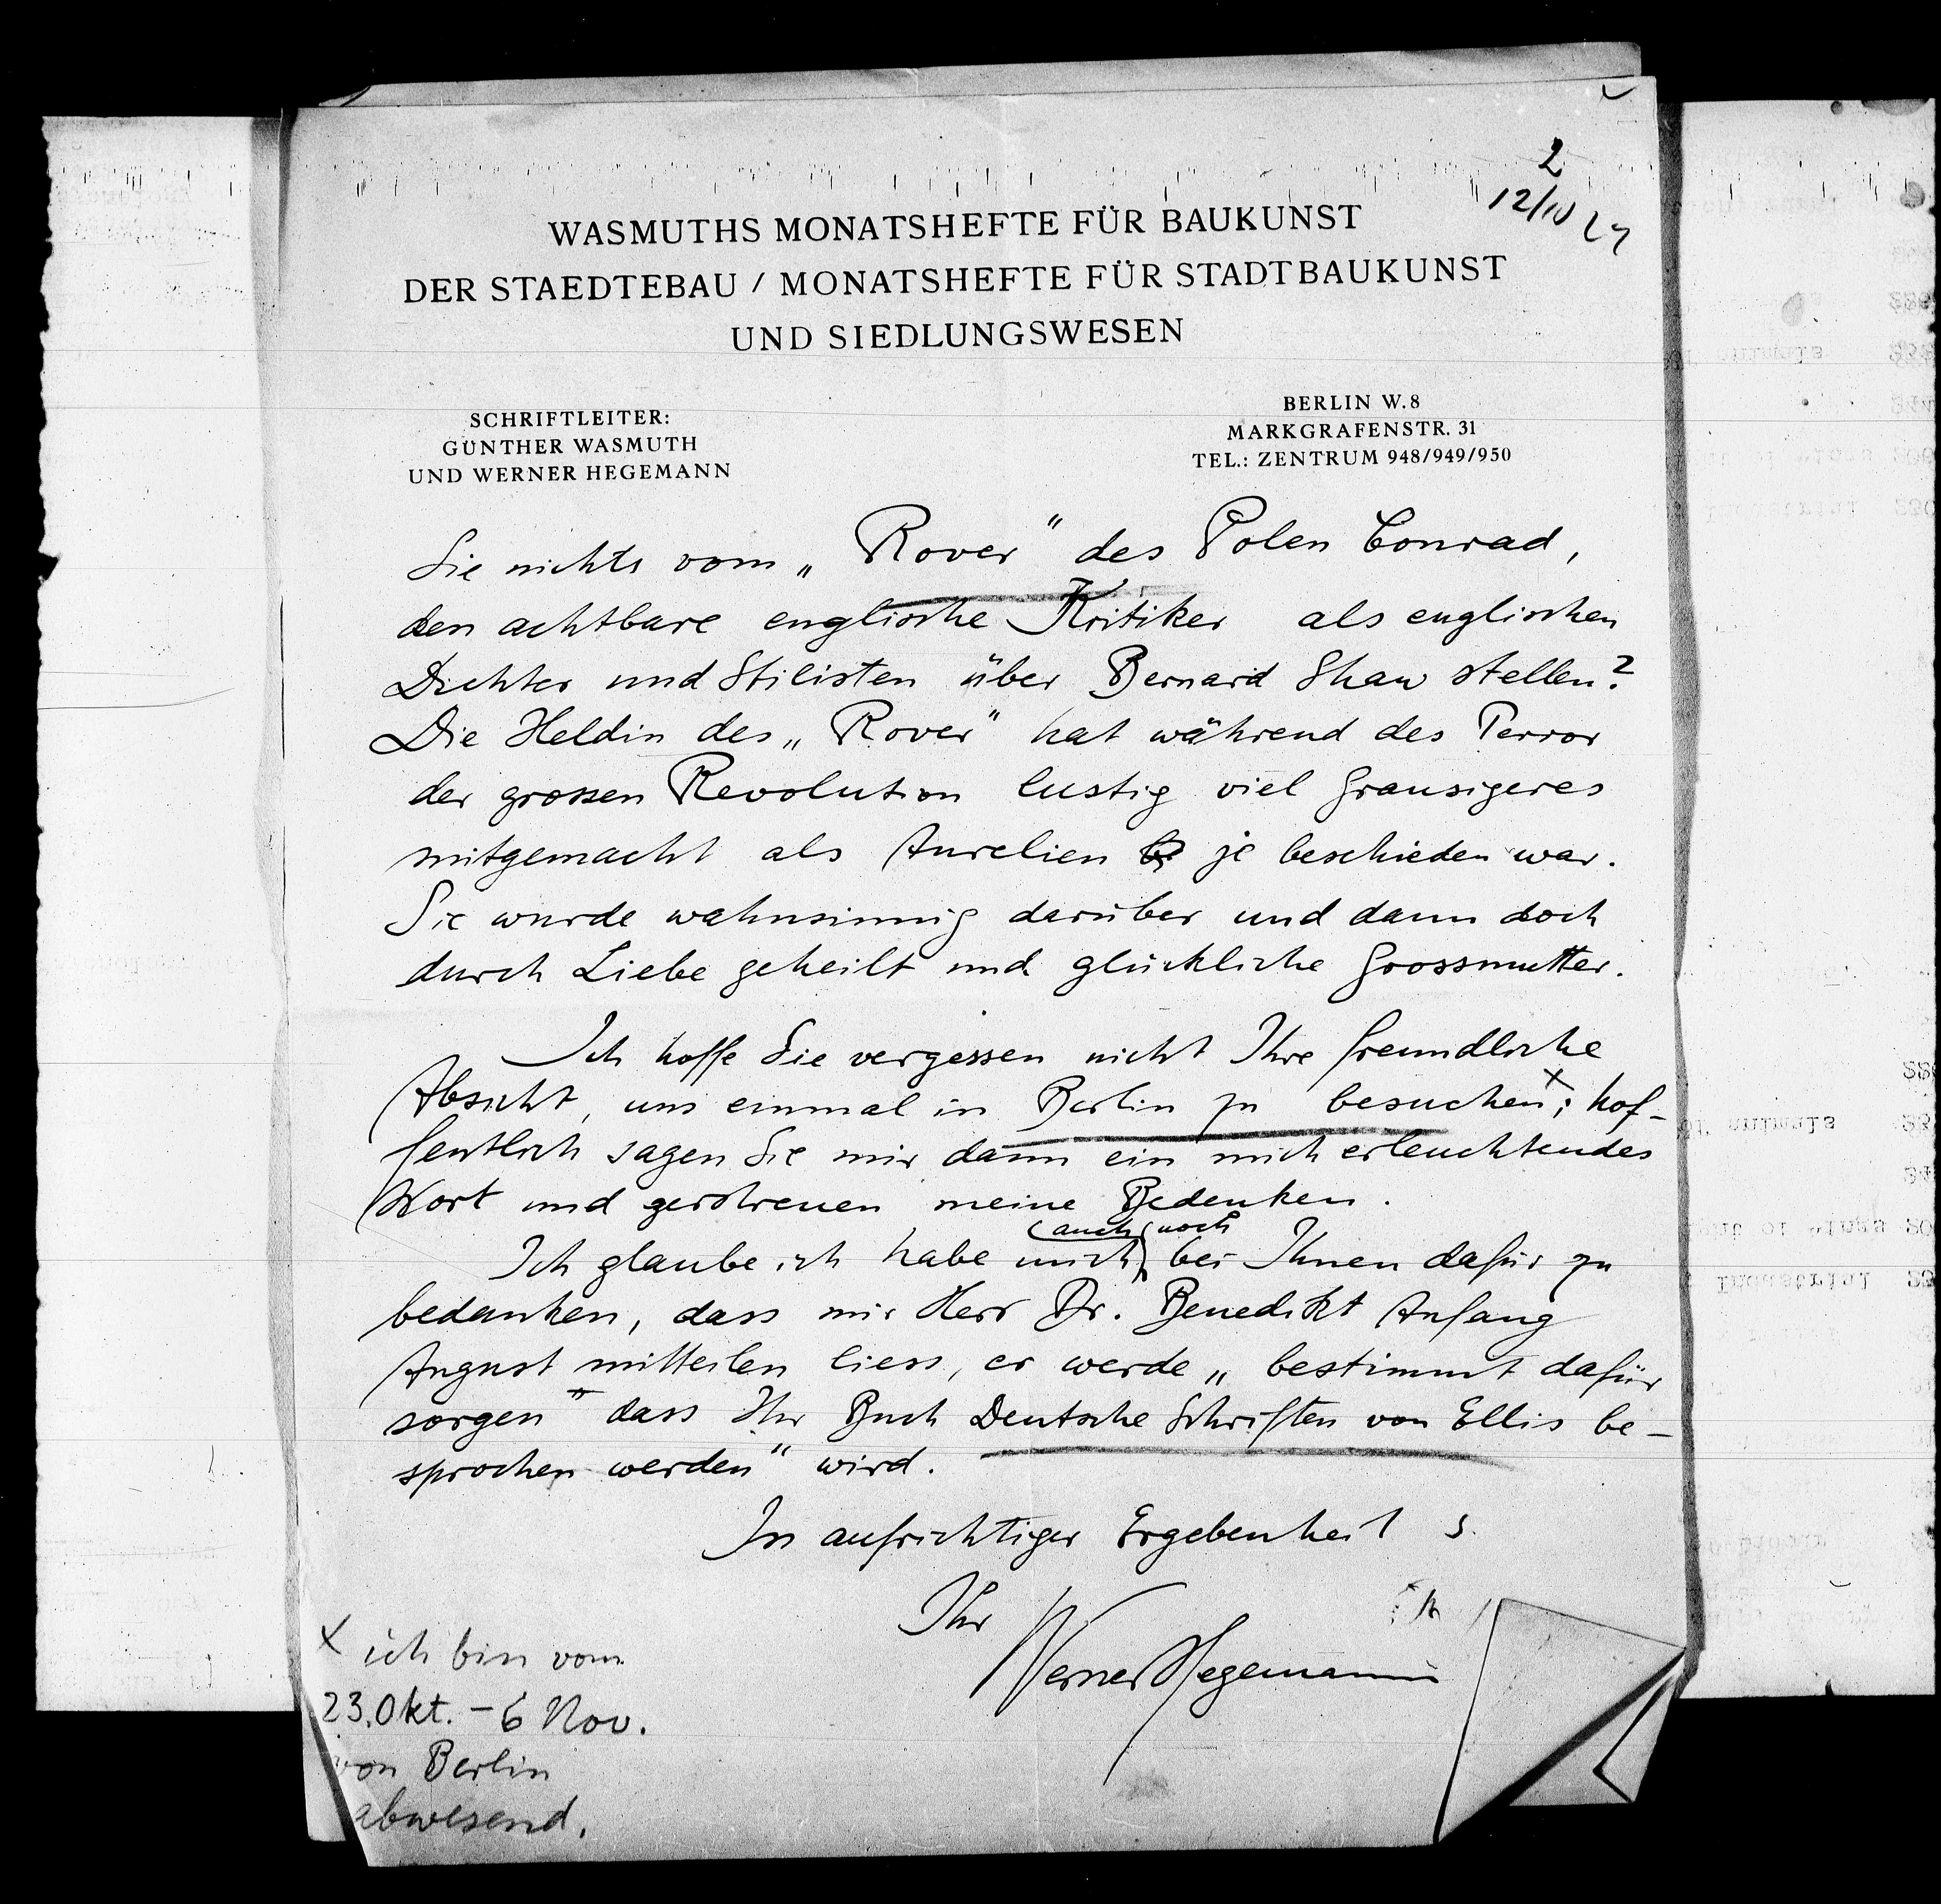 2
12/10 27
WASMUTHS MONATSHEFTE FÜR BAUKUNST
DER STAEDTEBAU / MONATSHEFTE FÜR STADTBAUKUNST
UND SIEDLUNGSWESEN
SCHRIFTLEITER:
GÜNTHER WASMUTH
UND WERNER HEGEMANN
BERLIN W.8
MARKGRAFENSTR. 31
TEL.: ZENTRUM 948/949/950
Sie nichts vom „Rover" des Polen Conrad,
den achtbare englische Kritiker als englischen
Dichter und Stilisten über Bernard Shaw stellen?
Die Heldin des „Rover" hat während des Terror
der grossen Revolution lustig viel Grausigeres
mitgemacht als Aurelien je beschieden war.
Sie wurde wahnsinnig darüber und dann doch
durch Liebe geheilt und glückliche Grossmutter.
Ich hoffe Sie vergessen nicht Ihre freundliche
Absicht, uns einmal in Berlin zu besuchen x; hof-
fentlich sagen Sie mir dann ein mich erleuchtendes
Wort und zerstreuen meine Bedenken.
auch noch
Ich glaube ich habe mich bei Ihnen dafür zu
bedanken, dass mir Herr Dr. Benedikt Anfang
August mitteilen liess, er werde „bestimmt dafür
sorgen" dass Ihr Buch Deutsche Schriften von Ellis be-
sprochen werden" wird.
In aufrichtiger Ergebenheit
Ihr
Werner Hegemann
x ich bin vom
23. Okt. - 6 Nov.
von Berlin
abwesend.